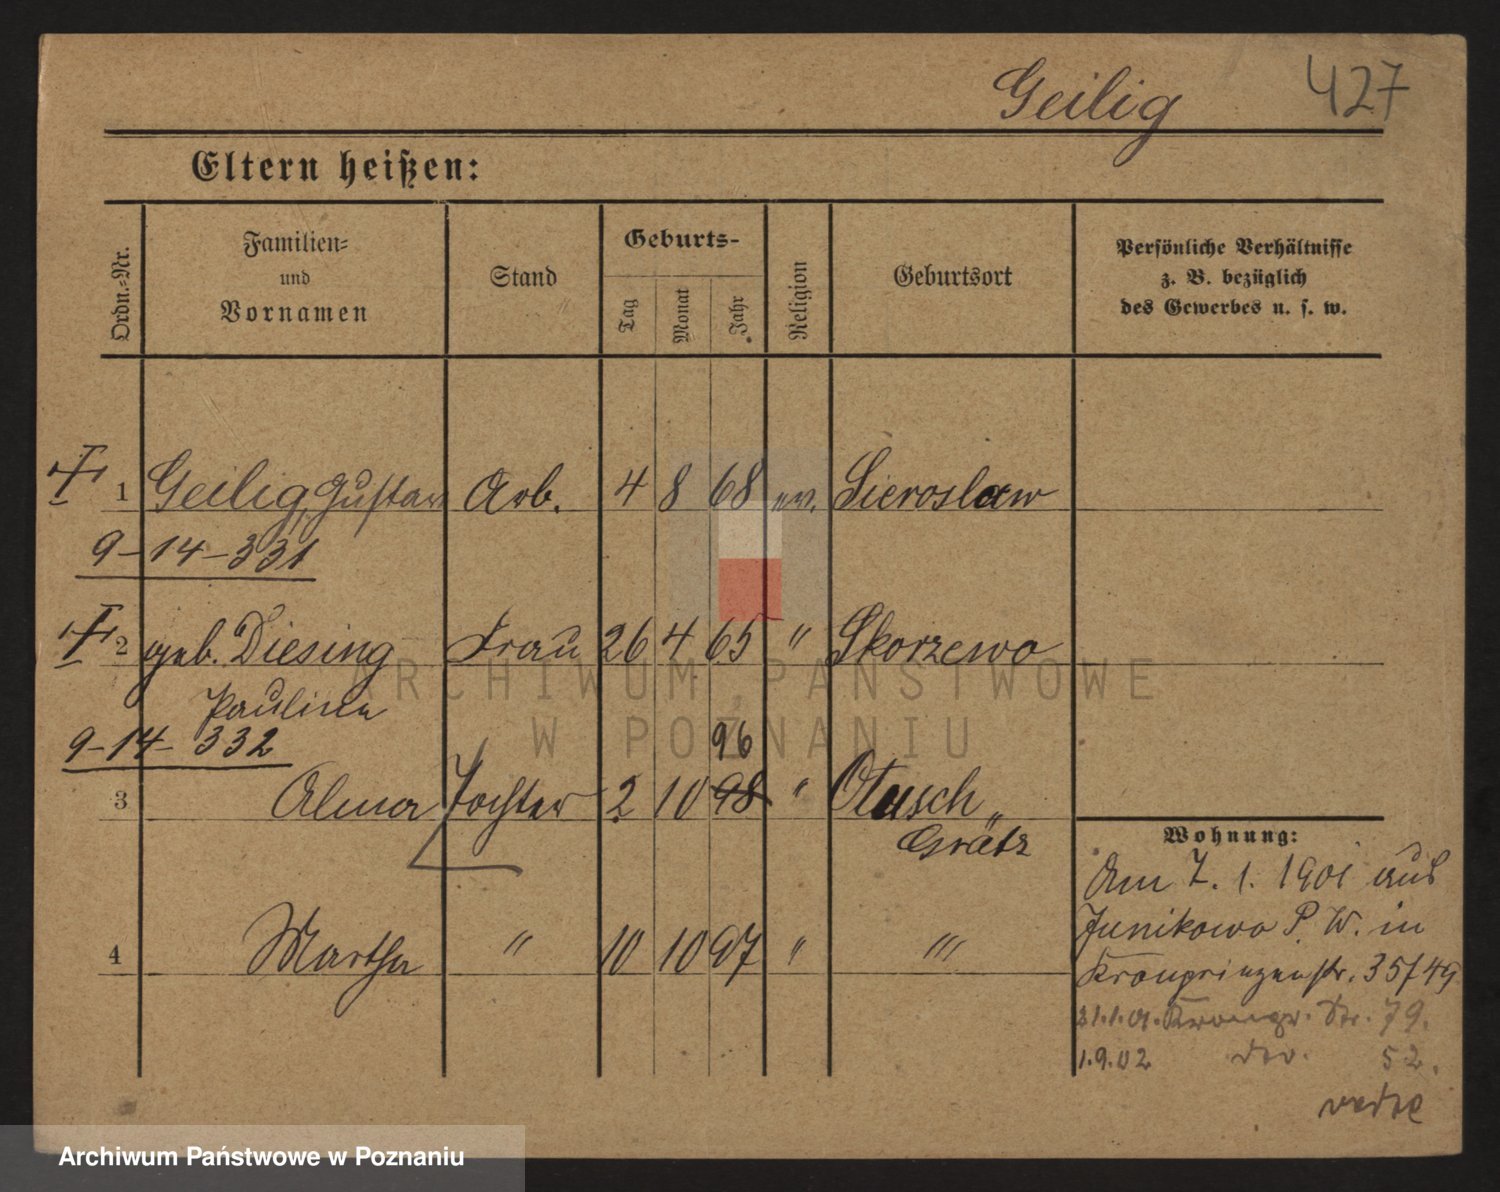 Geilig 427
Eltern heißen:
Ordn.-Nr.
Familien-
und
Vornamen
Stand
Geburts-
Tag
Monat
Jahr
Religion
Geburtsort
Persönliche Verhältnisse
z. B. bezüglich
des Gewerbes u. s. w.
1 Geilig, Gustav Arb. 4 8 68 ev. Sieroslaw
9-14-331
2 geb. Diesing Frau 26 4 65 " Skorzewo
Pauline
9-14-332
96
3 Alma Tochter 2 10 98 " Otusch
Grätz
4 Martha " 10 10 97 " "'
Wohnung:
Am 7. 1. 1901 aus
Junikowo P. W. in
Kronprinzenstr. 35/49
21.1.01. Kronpr. Str. 79.
1.9.02 do. 52.
ARCHIWUM PAŃSTWOWE
W POZNANIU
Archiwum Państwowe w Poznaniu